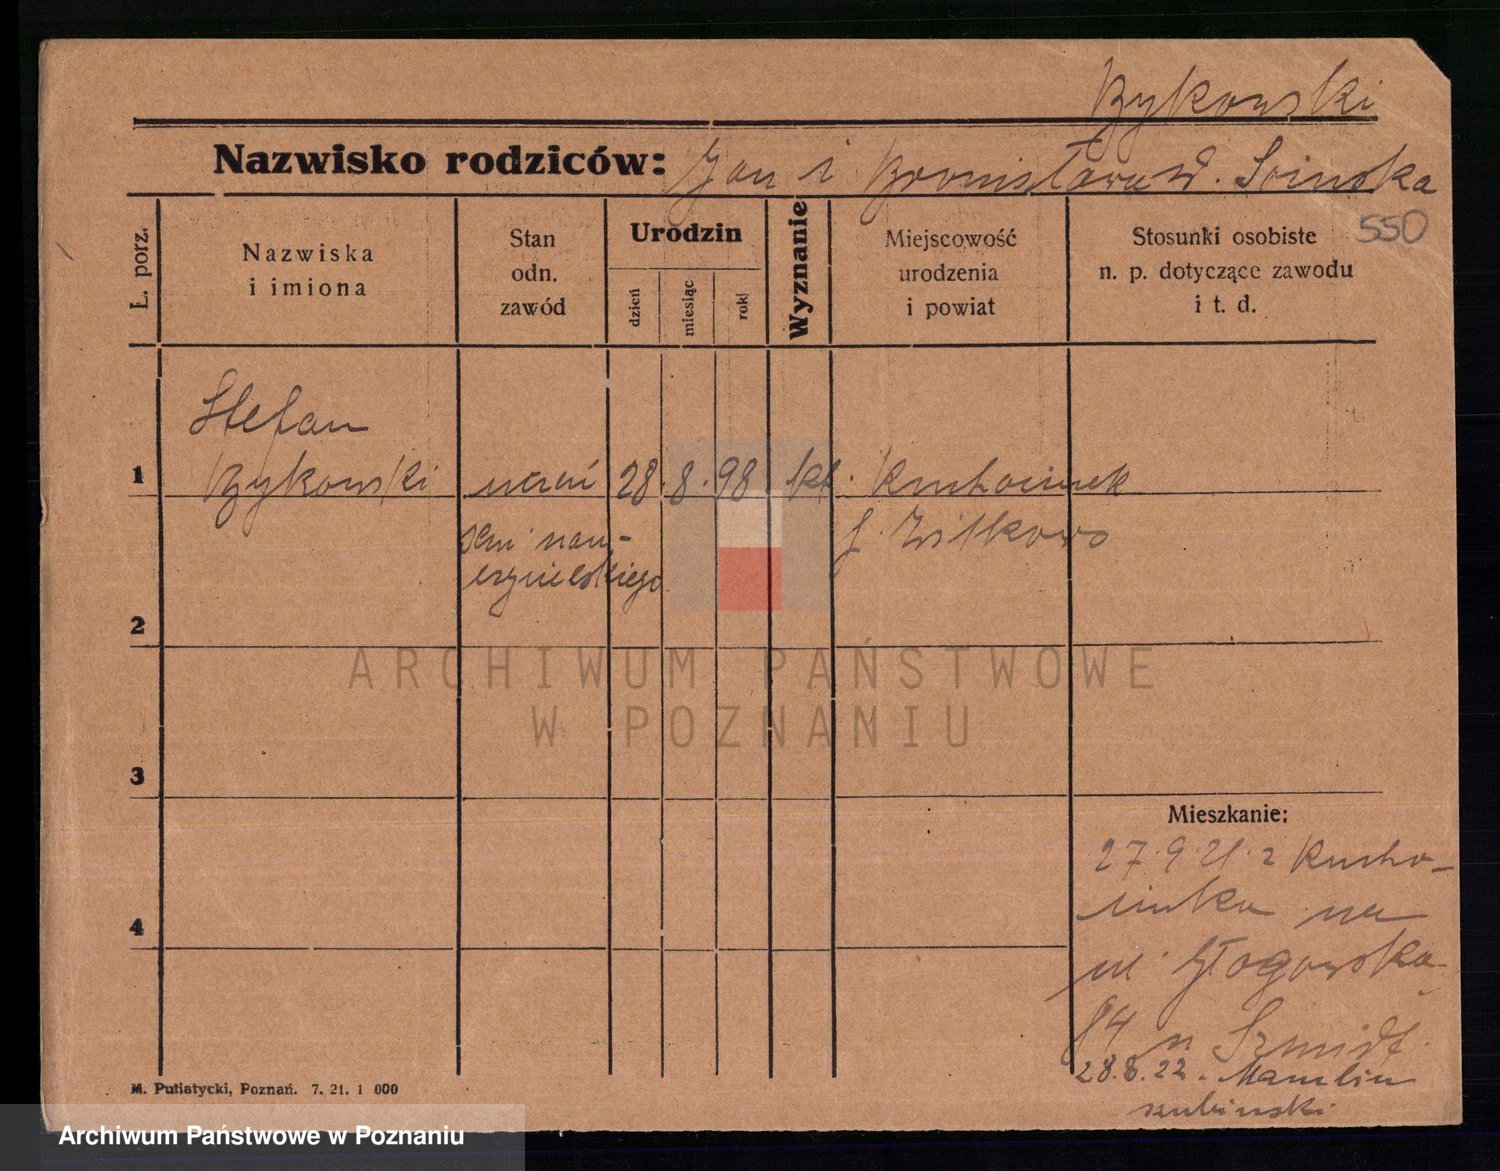 Bykowski
Nazwisko rodziców: Jan i Bronisława d.
550
Ł. porz.
Nazwiska
i imiona
Stan
odn.
zawód
Urodzin
dzień
miesiąc
rok
Wyznanie
Miejscowość
urodzenia
i powiat
Stosunki osobiste
n. p. dotyczące zawodu
i t. d.
Stefan
1 Bykowski uczeń 28. 8. 98 kt. Ruchocinek
sem nau-
czycielskiego
p. Witkowo
2
3
4
Mieszkanie:
27.9.21. z Rucho-
cinka na
ul. Głogowska
84 u Szmidt.
28.8.22.
szubiński
M. Putiatycki, Poznań. 7. 21. 1 000
ARCHIWUM PAŃSTWOWE
W POZNANIU
Archiwum Państwowe w Poznaniu